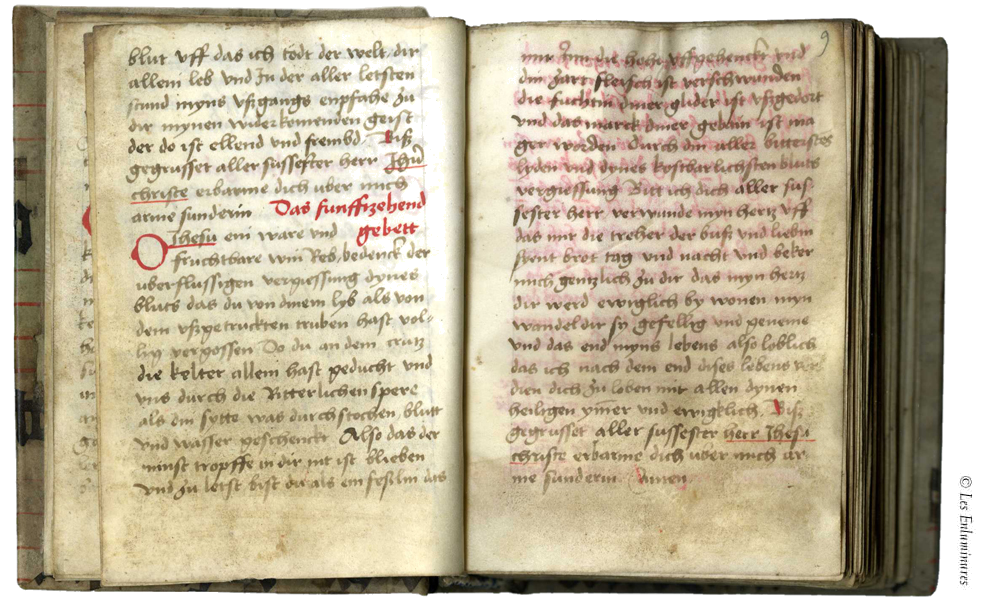 blut vff das ich tödt der welt dir
allein leb vnd Jn der aller letsten
stund myns vßgangs enpfahe zu
dir mynen widerkomenden geist
der do ist ellend vnd frembd Biß
gegrusset aller sussester herr Jhesu
christe erbarme dich uber mich
arme sunderin Das funffzehend
gebett
O Jhesu ein ware vnd
fruchtbare win Reb bedenck der
uberflussigen vergiessung dynes
bluts das du von dinem lyb als von
dem vßgetruckten truben hast vol-
lig vergossen Do du an dem crütz
die kelter allein hast geducht vnd
vns durch die Ritterlichen spere
als din sytte was durchstochen blutt
vnd wasser geschenckt Also das der
minst tropffe in dir nit ist blieben
vnd zu letst bist du als ein das
9
die hehi vffgehenckt vnd
din zart fleisch ist verschwunden
die fuchtin diner glider ist vßgedort
vnd das marck diner gebein ist ma
ger worden Durch din aller bitterstes
lyden vnd dynes kostbarlichsten bluts
vergiessung Bitt ich dich aller sus
sester herr verwunde myn hertz vff
das mir die treher der buß vnd liebin
syent brot tag vnd nacht vnd beker
mich gentzlich zu dir das myn hertz
dir werd ewiglich by wonen myn
wandel dir sy gefellig vnd geneme
vnd das end myns lebens also loblich
das ich nach dem end dises lebens ver
dien dich zu loben mit allen dynen
heiligen ymer vnd ewigklich. Biß
gegrusset aller sussester herr Jhesu
christe erbarme dich uber mich ar
me sunderin Amen
© Les Enluminures